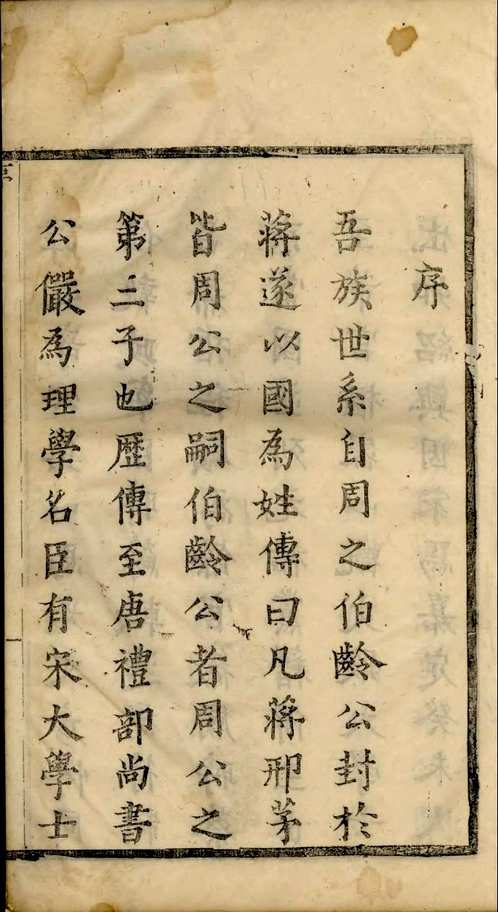 序
吾族世系自周之伯齡公封於
蔣遂以國為姓傳曰凡蔣邢茅
皆周公之嗣伯齡公者周公之
第三子也歷傳至唐禮部尚書
公儼為理學名臣有宋大學士